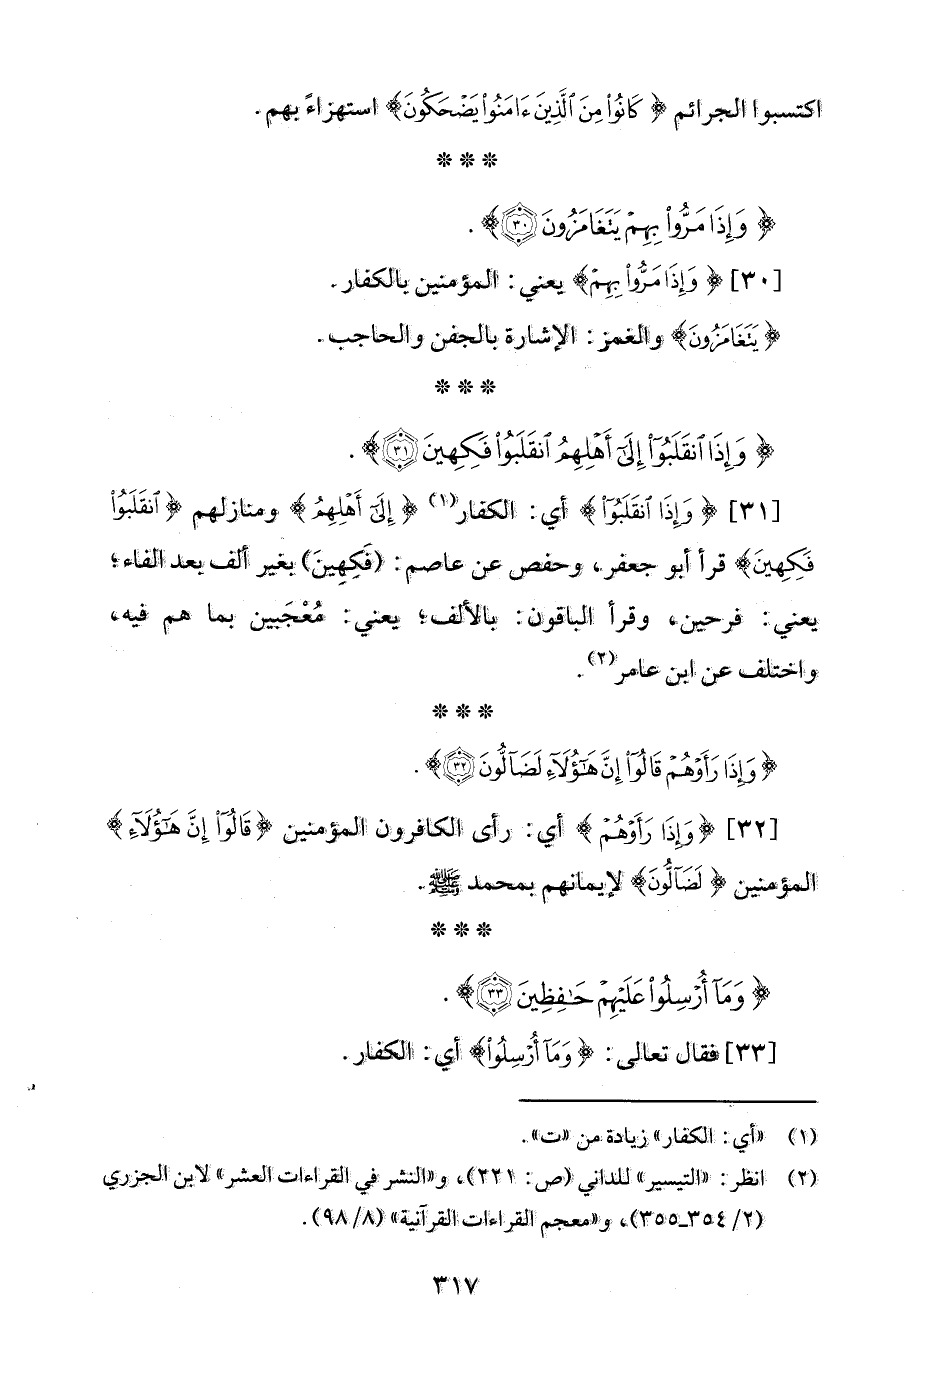 اكتسبوا الجرائم ﴿ كَانُوا۟ مِنَ ٱلَّذِينَ ءَامَنُوا۟ يَضْحَكُونَ﴾ استهزاءً بهم.
* * *
﴿ وَإِذَا مَرُّوا۟ بِهِمْ يَتَغَامَزُونَ ٣٠﴾.
[٣٠] ﴿ وَإِذَا مَرُّوا۟ بِهِمْ﴾ يعني: المؤمنين بالكفار.
﴿ يَتَغَامَزُونَ﴾ والغمز: الإشارة بالجفن والحاجب.
* * *
﴿ وَإِذَا ٱنقَلَبُوٓا۟ إِلَىٰٓ أَهْلِهِمُ ٱنقَلَبُوا۟ فَكِهِينَ ٣١﴾.
[٣١] ﴿ وَإِذَا ٱنقَلَبُوٓا۟ ﴾ أي: الكفار(١) ﴿ إِلَىٰٓ أَهْلِهِمُ ﴾ ومنازلهم ﴿ ٱنقَلَبُوا۟
فَكِهِينَ﴾ قرأ أبو جعفر، وحفص عن عاصم: (فَكِهِينَ) بغير ألف بعد الفاء؛
يعني: فرحين، وقرأ الباقون: بالألف؛ يعني: مُعْجَبين بما هم فيه،
واختلف عن ابن عامر(٢).
* * *
﴿ وَإِذَا رَأَوْهُمْ قَالُوٓا۟ إِنَّ هَٰٓؤُلَآءِ لَضَآلُّونَ ٣٢﴾.
[٣٢] ﴿ وَإِذَا رَأَوْهُمْ ﴾ أي: رأى الكافرون المؤمنين ﴿ قَالُوٓا۟ إِنَّ هَٰٓؤُلَآءِ ﴾
المؤمنين ﴿ لَضَآلُّونَ﴾ لإيمانهم بمحمد ﷺ.
* * *
﴿ وَمَآ أُرْسِلُوا۟ عَلَيْهِمْ حَٰفِظِينَ ٣٣﴾.
[٣٣] فقال تعالى: ﴿ وَمَآ أُرْسِلُوا۟﴾ أي: الكفار.
(١) «أي: الكفار» زيادة من «ت».
(٢) انظر: «التيسير» للداني (ص: ٢٢١)، و«النشر في القراءات العشر» لابن الجزري
(٢/ ٣٥٤ـ٣٥٥)، و«معجم القراءات القرآنية» (٨/ ٩٨).
٣١٧